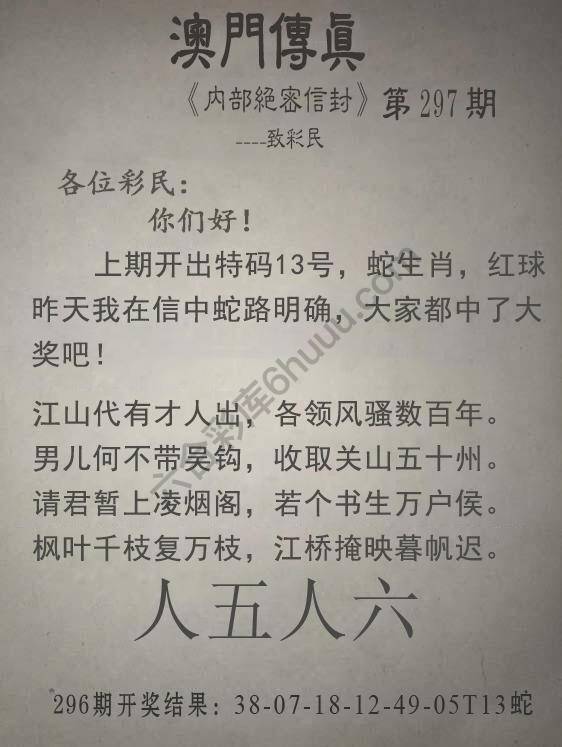 澳門傳真
《内部絕密信封》第297期
----致彩民
各位彩民：
你们好！
上期开出特码13号，蛇生肖，红球
昨天我在信中蛇路明确，大家都中了大
奖吧！
江山代有才人出，各领风骚数百年。
男儿何不带吴钩，收取关山五十州。
请君暂上凌烟阁，若个书生万户侯。
枫叶千枝复万枝，江桥掩映暮帆迟。
人五人六
296期开奖结果：38-07-18-12-49-05T13蛇
六合彩库6huuu.com